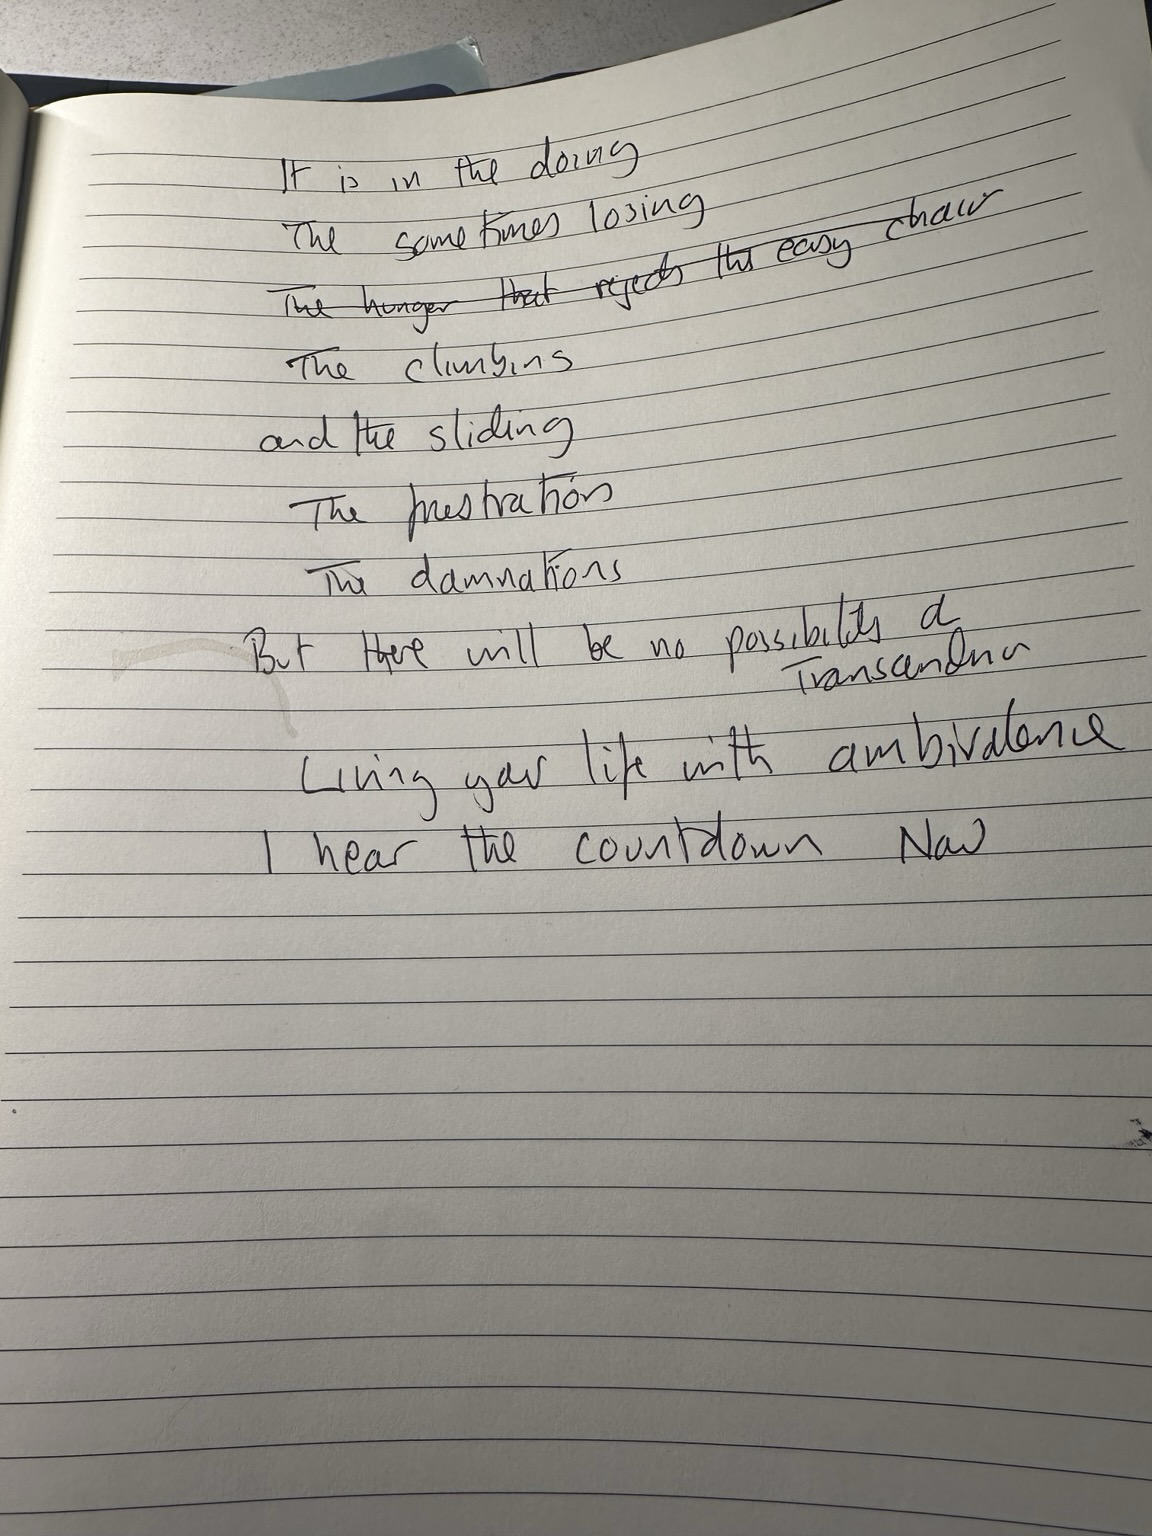 It is in the doing
The sometimes losing
The hunger that rejects the easy chair
The climbing
and the sliding
The frustrations
The damnations
But there will be no possibility of
Transcendence
Living your life with ambivalence
I hear the countdown Now